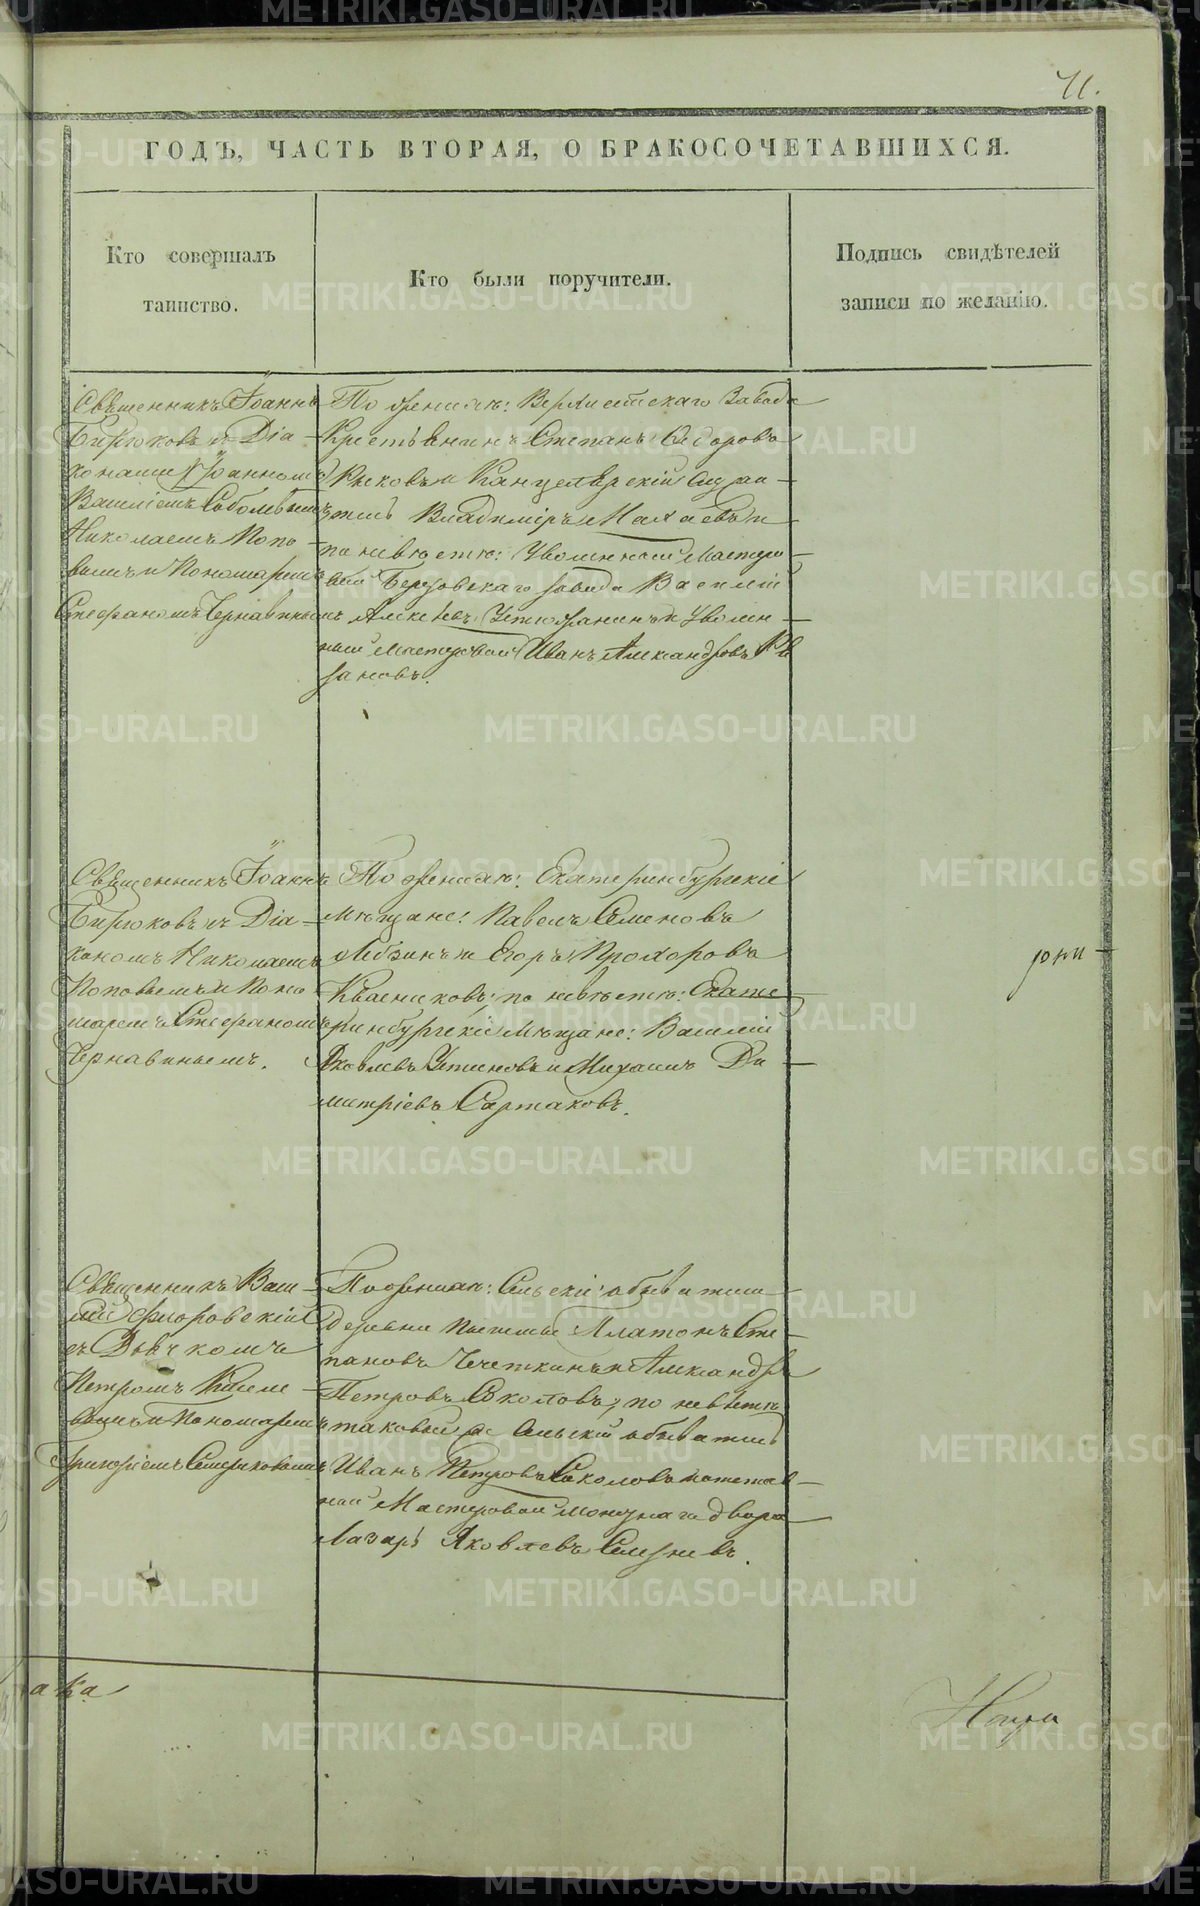 71.
ГОДЪ, ЧАСТЬ ВТОРАЯ, О БРАКОСОЧЕТАВШИХСЯ.
Кто совершалъ
таинство.
Кто были поручители.
Подпись свидѣтелей
записи по желанію.
Священникъ Іоаннъ
Бирюковъ съ Діа-
конами Іоанномъ
Василіемъ Соболевымъ
Николаемъ Попо-
вымъ и Пономаремъ
Стефаномъ Чернавинымъ
По женихѣ: Верхисетскаго Завода
Крестьянинъ Степанъ Ѳедоровъ
Рыковъ и Канцелярскій Служи-
тель Владиміръ и
по невѣстѣ: Уволенный Мастеро-
вой Березовскаго завода Василій
Алексѣевъ и Уволен-
ный Мастеровой Иванъ Александровъ Ря-
зановъ.
Священникъ Іоаннъ
Бирюковъ съ Діа-
кономъ Николаемъ
Поповымъ и Поно-
маремъ Стефаномъ
Чернавинымъ.
По женихѣ: Екатеринбургскіе
Мѣщане: Павелъ Семеновъ
и Егоръ Прохоровъ
Квасниковъ; по невѣстѣ: Екате-
ринбургскіе Мѣщане: Василій
Яковлевъ Устиновъ и Михаилъ Ди-
митріевъ Сартаковъ.
Священникъ Васи-
лій Флоровскій
съ Дьячкомъ
Петромъ
и Пономаремъ
Григоріемъ
По женихѣ: Сельскіе обыватели
деревни Пышмы Платонъ Сте-
пановъ Чечеткинъ и Александръ
Петровъ Соколовъ; по невѣстѣ
таковой же Сельскій обыватель
Иванъ Петровъ Соколовъ и отстав-
ной Мастеровой Монетнаго двора
Лазарь Яковлевъ Селезневъ.